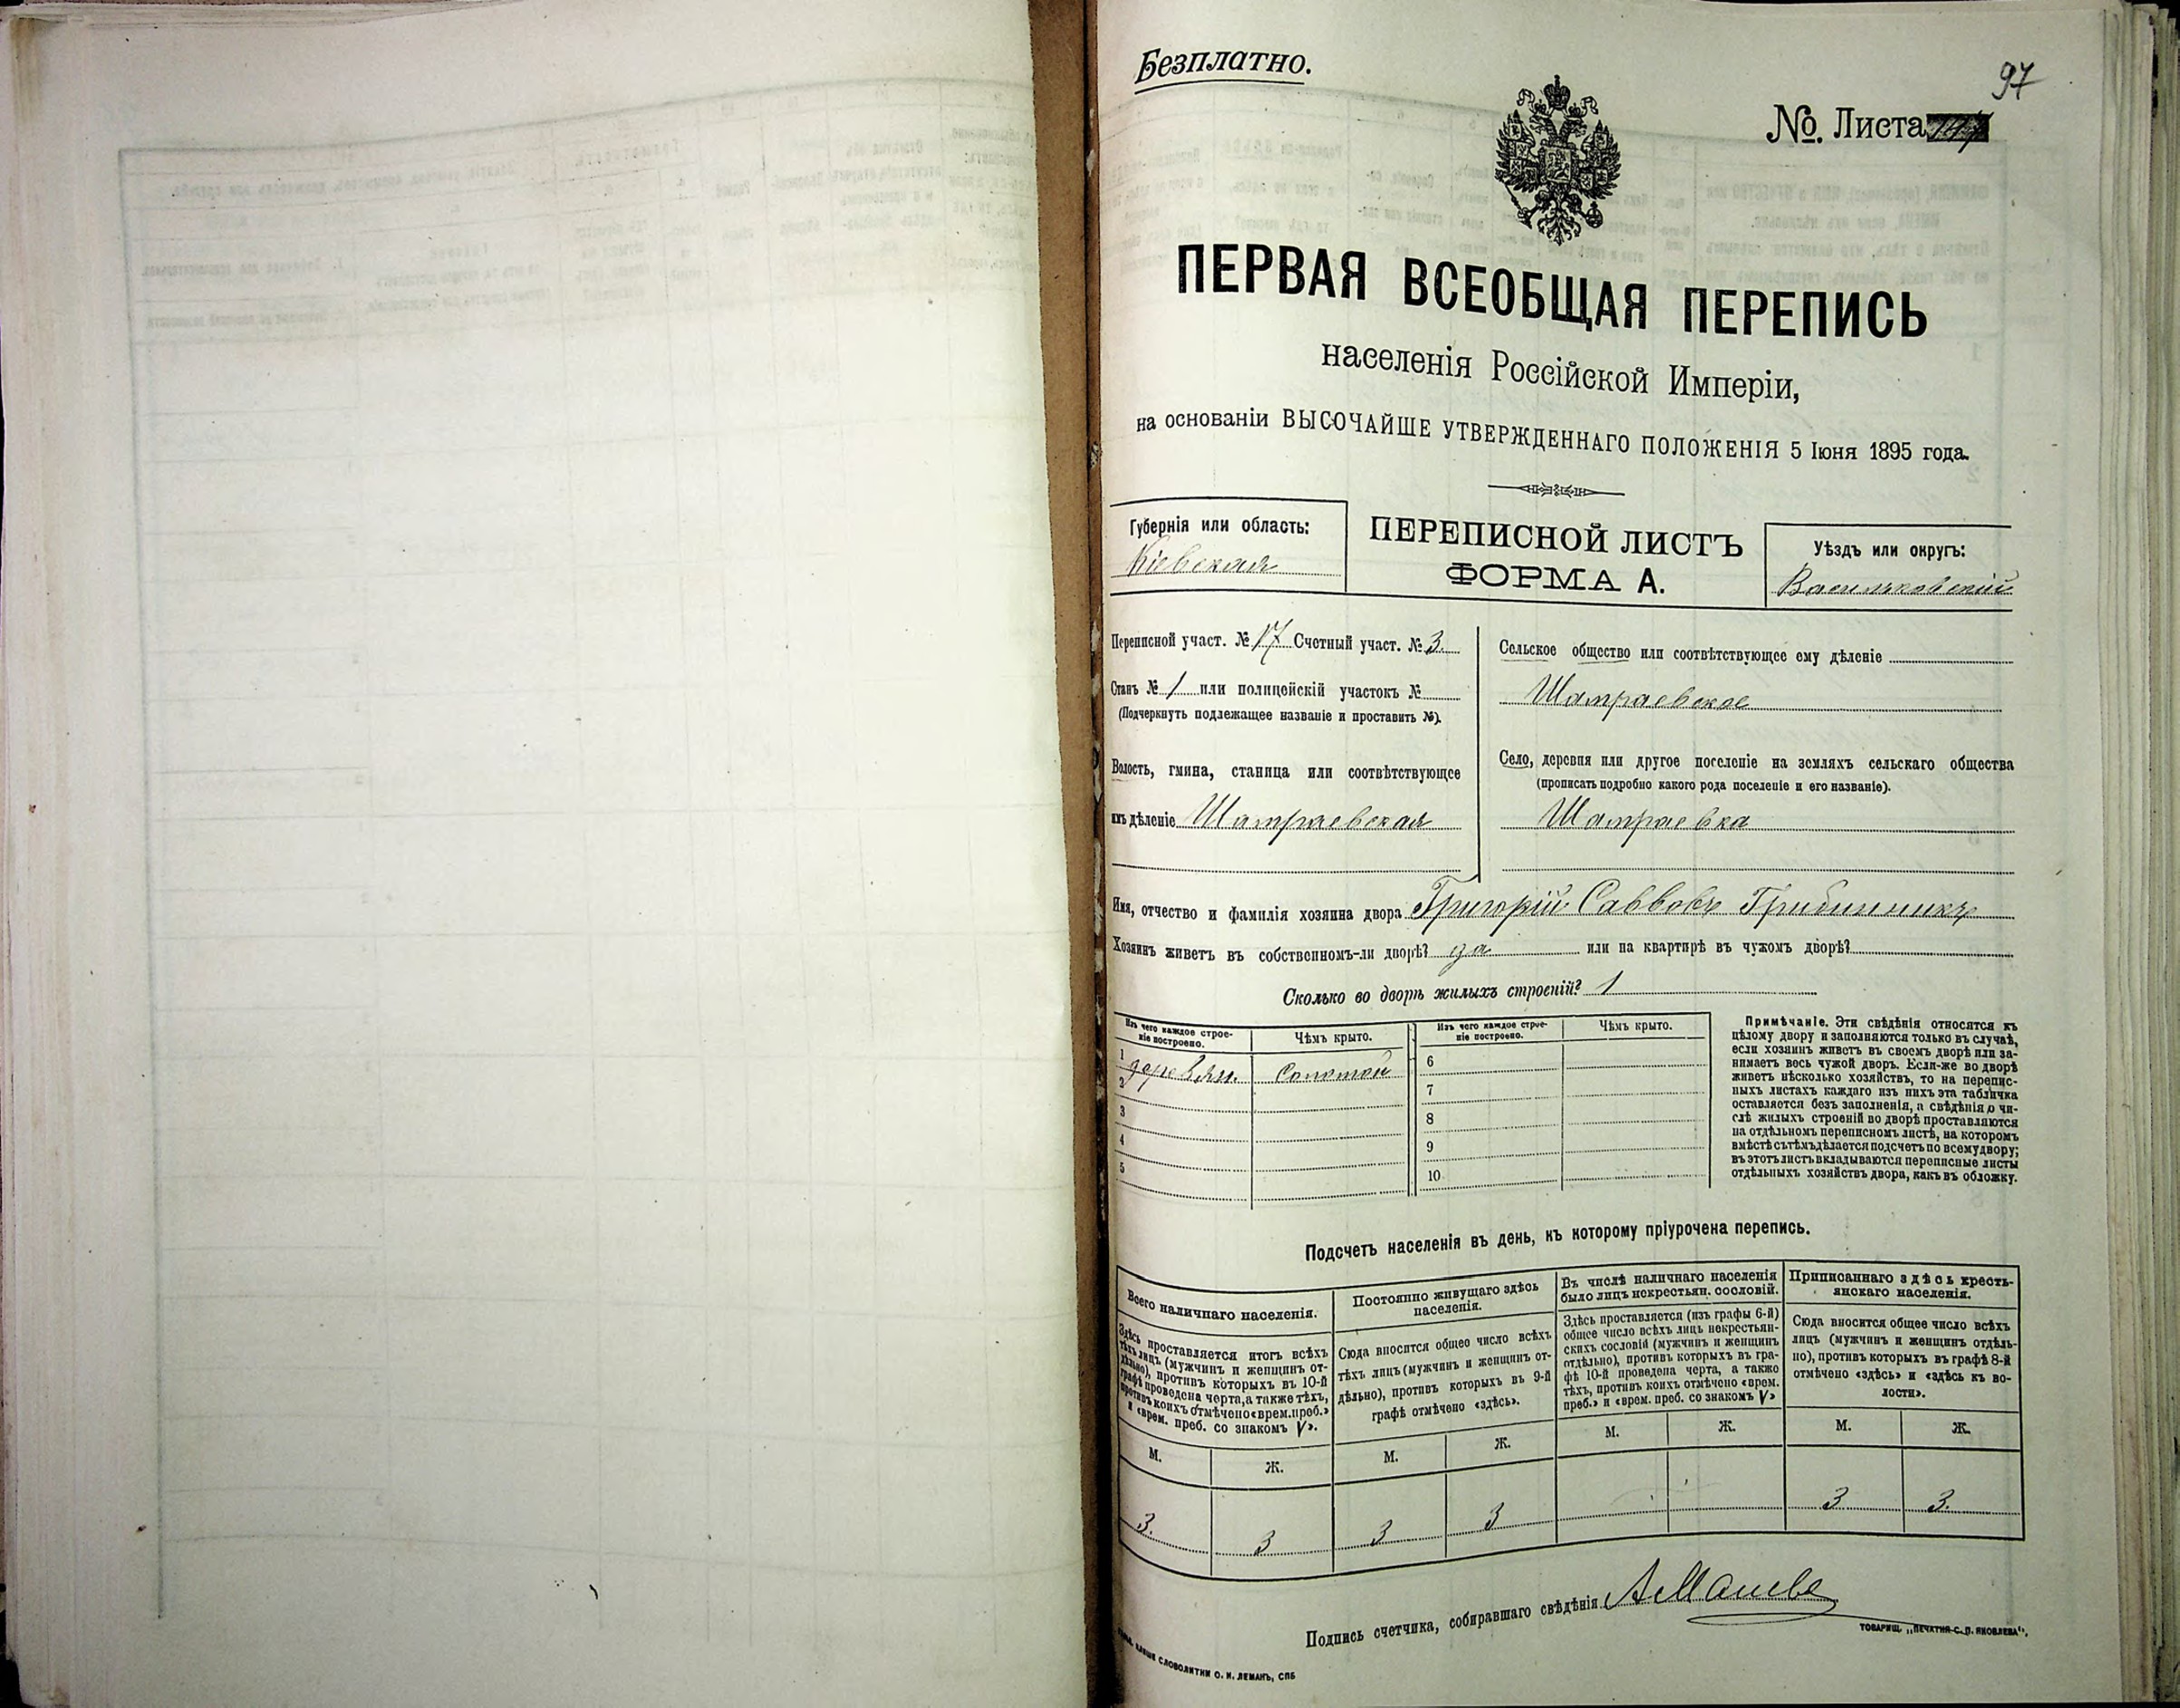 Безплатно.
97
№. Листа
ПЕРВАЯ ВСЕОБЩАЯ ПЕРЕПИСЬ
населенія Россійской Имперіи,
на основаніи ВЫСОЧАЙШЕ УТВЕРЖДЕННАГО ПОЛОЖЕНІЯ 5 Іюня 1895 года.
Губернія или область:
Кіевская
ПЕРЕПИСНОЙ ЛИСТЪ
ФОРМА А.
Уѣздъ или округъ:
Васильковскій
Переписной участ. № 17 Счетный участ. № 3.
Станъ № 1 или полицейскій участокъ №
(Подчеркнуть подлежащее названіе и проставить №).
Волость, гмина, станица или соотвѣтствующее
имъ дѣленіе Шамраевская
Сельское общество или соотвѣтствующее ему дѣленіе
Шамраевское
Село, деревня или другое поселеніе на земляхъ сельскаго общества
(прописать подробно какого рода поселеніе и его названіе).
Шамраевка
Имя, отчество и фамилія хозяина двора Григорій Саввовъ
Хозяинъ живетъ въ собственномъ-ли дворѣ? да или на квартирѣ въ чужомъ дворѣ?
Сколько во дворѣ жилыхъ строеній? 1
Изъ чего каждое строе-
ніе построено.
Чѣмъ крыто.
Изъ чего каждое строе-
ніе построено.
Чѣмъ крыто.
1 дерев​ян. Соломой
2
3
4
5
6
7
8
9
10
Примѣчаніе. Эти свѣдѣнія относятся къ
цѣлому двору и заполняются только въ случаѣ,
если хозяинъ живетъ въ своемъ дворѣ или за-
нимаетъ весь чужой дворъ. Если-же во дворѣ
живетъ нѣсколько хозяйствъ, то на перепис-
ныхъ листахъ каждаго изъ нихъ эта табличка
оставляется безъ заполненія, а свѣдѣнія о чи-
слѣ жилыхъ строеній во дворѣ проставляются
на отдѣльномъ переписномъ листѣ, на которомъ
вмѣстѣ съ тѣмъ дѣлается подсчетъ по всему двору;
въ этотъ листъ вкладываются переписные листы
отдѣльныхъ хозяйствъ двора, какъ въ обложку.
Подсчетъ населенія въ день, къ которому пріурочена перепись.
Всего наличнаго населенія.
Здѣсь проставляется итогъ всѣхъ
тѣхъ лицъ (мужчинъ и женщинъ от-
дѣльно), противъ которыхъ въ 10-й
графѣ проведена черта, а также тѣхъ,
противъ коихъ отмѣчено «врем. преб.»
и «врем. преб. со знакомъ V».
М. Ж.
3. 3
Постоянно живущаго здѣсь
населенія.
Сюда вносится общее число всѣхъ
тѣхъ лицъ (мужчинъ и женщинъ от-
дѣльно), противъ которыхъ въ 9-й
графѣ отмѣчено «здѣсь».
М. Ж.
3 3
Въ числѣ наличнаго населенія
было лицъ некрестьян. сословій.
Здѣсь проставляется (изъ графы 6-й)
общее число всѣхъ лицъ некрестьян-
скихъ сословій (мужчинъ и женщинъ
отдѣльно), противъ которыхъ въ гра-
фѣ 10-й проведена черта, а также
тѣхъ, противъ коихъ отмѣчено «врем.
преб.» и «врем. преб. со знакомъ V»
М. Ж.
Приписаннаго здѣсь кресть-
янскаго населенія.
Сюда вносится общее число всѣхъ
лицъ (мужчинъ и женщинъ отдѣль-
но), противъ которыхъ въ графѣ 8-й
отмѣчено «здѣсь» и «здѣсь къ во-
лости».
М. Ж.
3 3.
Подпись счетчика, собиравшаго свѣдѣнія
ТОВАРИЩ. „ПЕЧАТНЯ С. П. ЯКОВЛЕВА“.
СЛОВОЛИТНИ О. И. ЛЕМАНЪ, СПБ